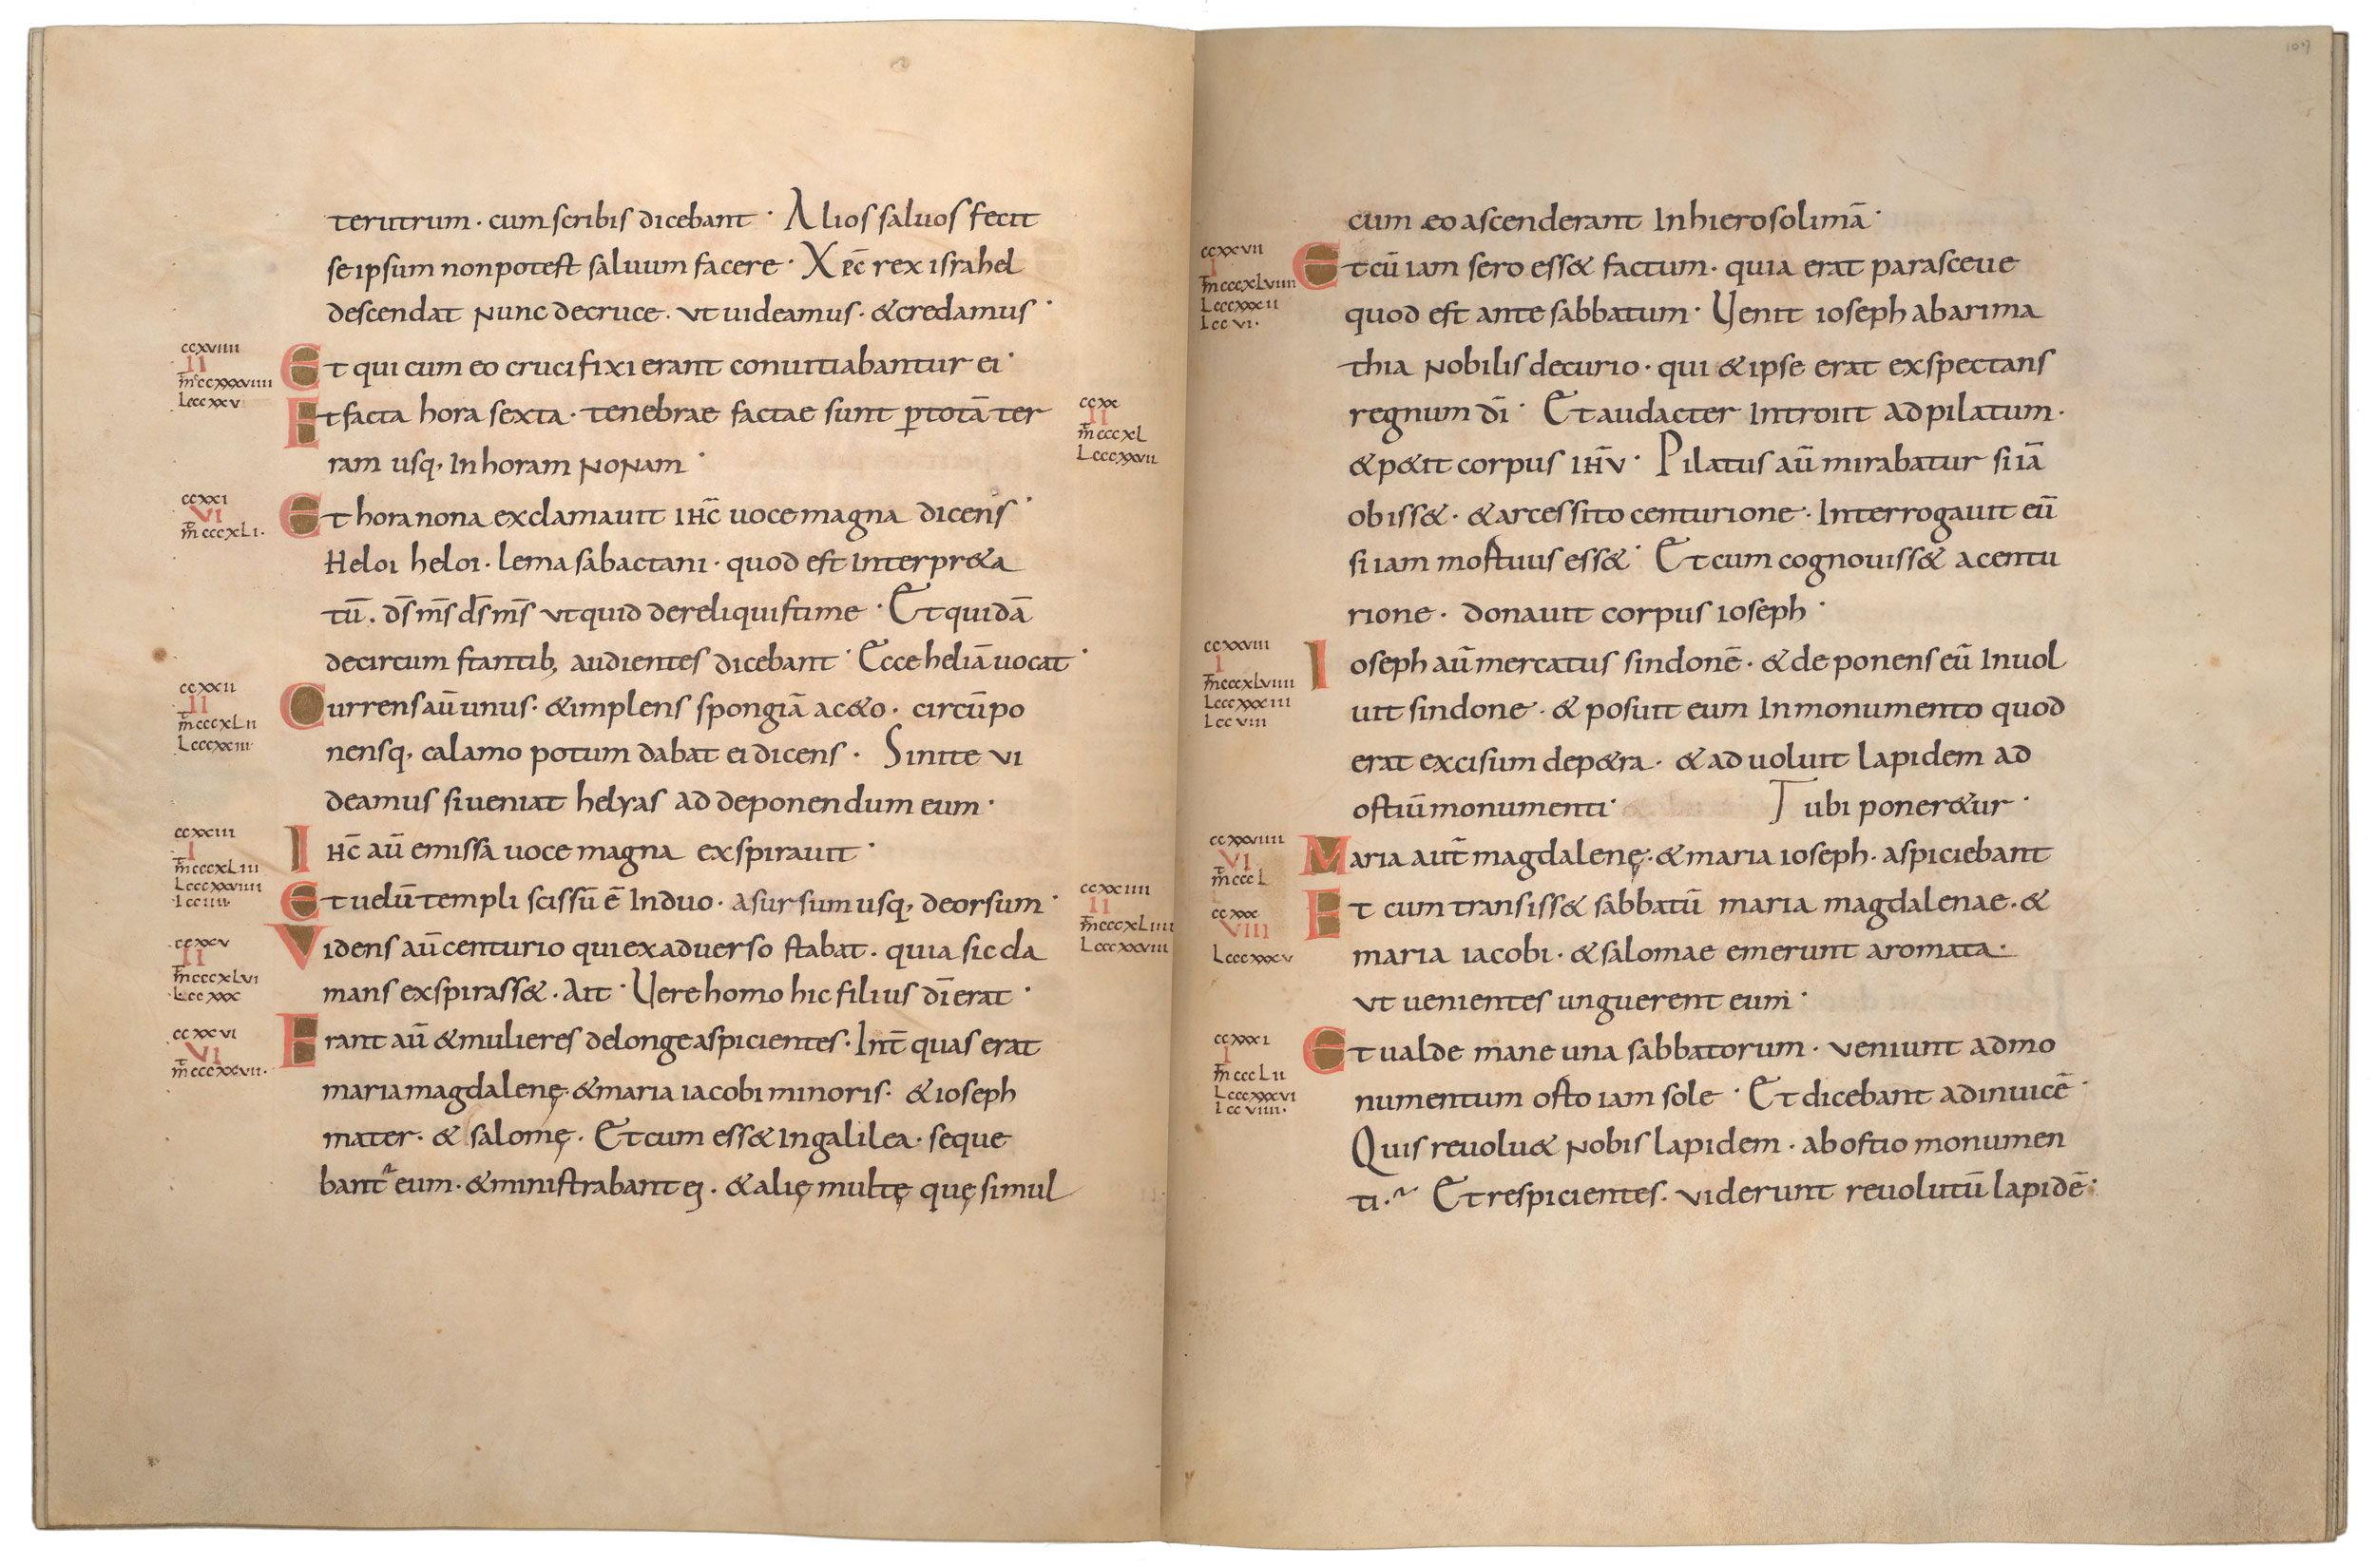 terutrum · cum scribis dicebant · Alios saluos fecit
se ipsum non potest saluum facere · Xp̄c rex israhel
descendat nunc decruce . ut uideamus · & credamus ·
ccxviiii
II
m̄ cccxxxviiii
Lcccxxv
Et qui cum eo crucifixi erant conuitiabantur ei ·
Et facta hora sexta · tenebrae factae sunt ꝑ totā ter
ccxx
II
m̄ cccxL
Lcccxxvii
ram usq, In horam nonam ·
ccxxi
VI
m̄ cccxLi ·
Et hora nona exclamauit ihc̄ uoce magna dicens ·
Heloi heloi · lema sabactani · quod est Interpr&a
tū . ds̄ ms̄ ds̄ ms̄ ut quid dereliquisti me · Et quidā
decircum stantib, audientes dicebant · Ecce heliā uocat ·
ccxxii
II
m̄ cccxLii
Lcccxxiii
Currens aū unus · & implens spongiā ac&o · circūpo
nensq, calamo potum dabat ei dicens · Sinite ui
deamus si ueniat helyas ad deponendum eum ·
ccxxiii
I
m̄ cccxLiii
Lcccxxviiii
Lcciiii
Ihc̄ aū emissa uoce magna exspirauit ·
Et uelū templi scissū ē In duo · a sursum usq, deorsum ·
ccxxiiii
II
m̄ cccxLiiii
Lcccxxviii
ccxxv
II
m̄ cccxLvi
Lccxxx
Videns aū centurio qui exaduerso stabat . quia sic cla
mans exspirass& . Ait · Uere homo hic filius dī erat ·
ccxxvi
VI
m̄ cccxxvii ·
Erant aū & mulieres delonge aspicientes · Int̄ quas erat
maria magdalenę · & maria iacobi minoris · & ioseph
mater · & salomę . Et cum ess& In galilea · seque
bant eum · & ministrabant ei . & alię multę quę simul
107
cum eo ascenderant In hierosolimā ·
ccxxvii
I
m̄ cccxLviii
Lcccxxxii
Lccvi ·
Et cū iam sero ess& factum · quia erat parasceue
quod est ante sabbatum · Uenit ioseph abarima
thia nobilis decurio · qui & ipse erat exspectans
regnum dī · Et audacter Introiit ad pilatum ·
& p&iit corpus ihū · Pilatus aū mirabatur si iā
obiss& · & arcessito centurione · Interrogauit eū
si iam mortuus ess& · Et cum cognouiss& a centu
rione · donauit corpus ioseph ·
ccxxviii
I
m̄ cccxLviiii
Lcccxxxiii
Lccviii
Ioseph aū mercatus sindonē · & deponens eū Inuol
uit sindone · & posuit eum In monumento quod
erat excisum dep&ra · & aduoluit lapidem ad
ostiū monumenti · ubi poner&ur ·
ccxxviiii
VI
m̄ cccL
Maria aut̄ magdalenę · & maria ioseph · aspiciebant
ccxxx
VIII
Lcccxxxv
Et cum transiss& sabbatū maria magdalenae · &
maria iacobi · & salomae emerunt aromata ·
ut uenientes unguerent eum ·
ccxxxi
I
m̄ cccLii
Lcccxxxvi
Lccviiii ·
Et ualde mane una sabbatorum · ueniunt ad mo
numentum orto iam sole · Et dicebant adinuicē ·
Quis reuolu& nobis lapidem · ab ostio monumen
ti · Et respicientes . uiderunt reuolutū lapidē ·